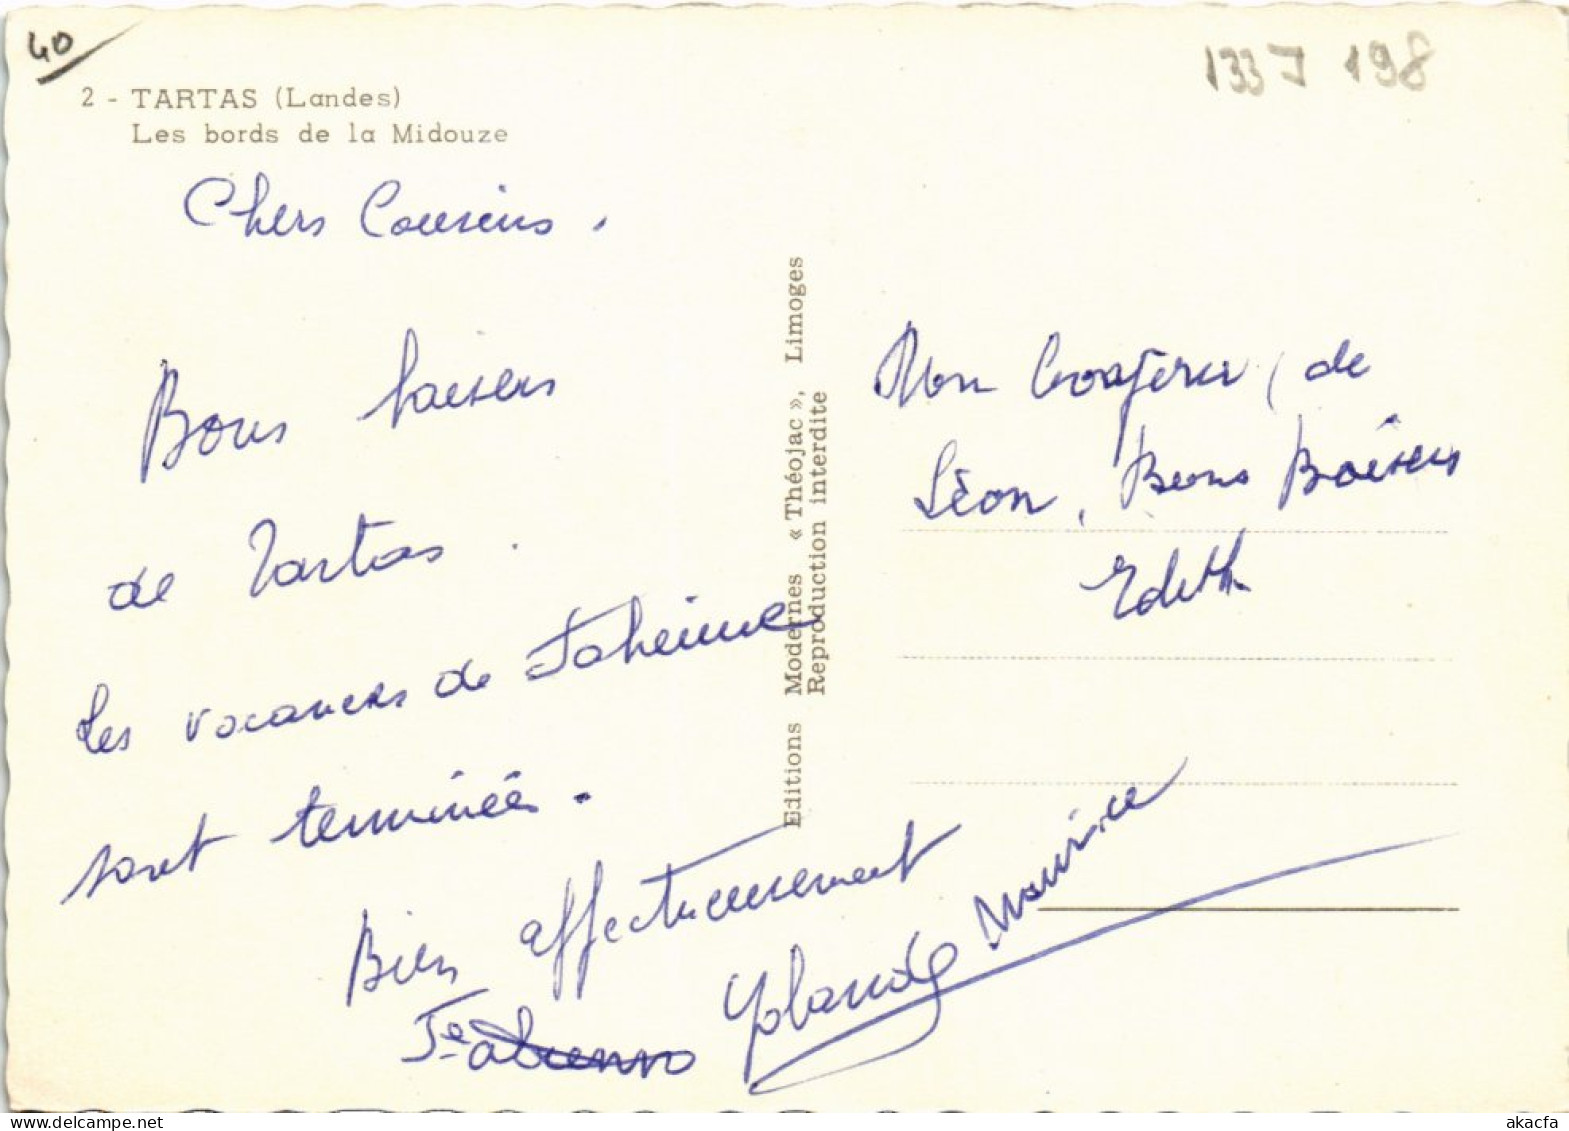 40
1337 198
2 - TARTAS (Landes)
Les bords de la Midouze
Chers Cousins.
Bons baisers
de Tartas.
Les vacances de
sont terminées.
Bien affectueusement
Yolande Maurice
Editions Modernes « Théojac », Limoges
Reproduction interdite
Mon , de
Léon, Bons Baisers
Edith
delcampe.net
akacfa